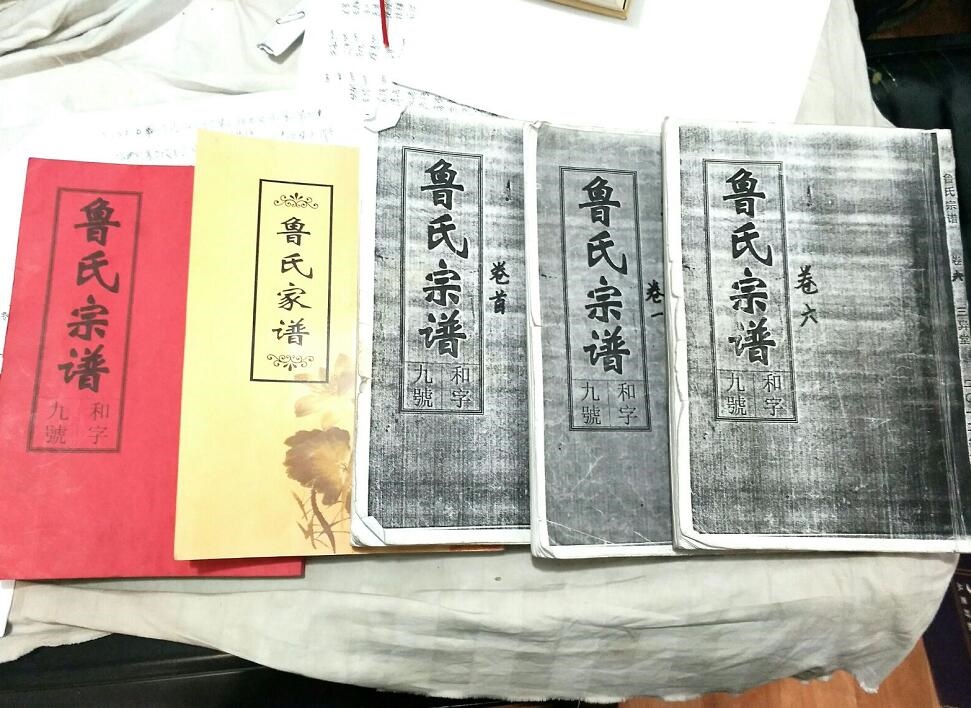 鲁氏宗谱
和字
九號
鲁氏家谱
鲁氏宗谱
和字
九號
卷首
鲁氏宗谱
和字
九號
卷一
鲁氏宗谱
和字
九號
卷六
鲁氏宗谱
卷六